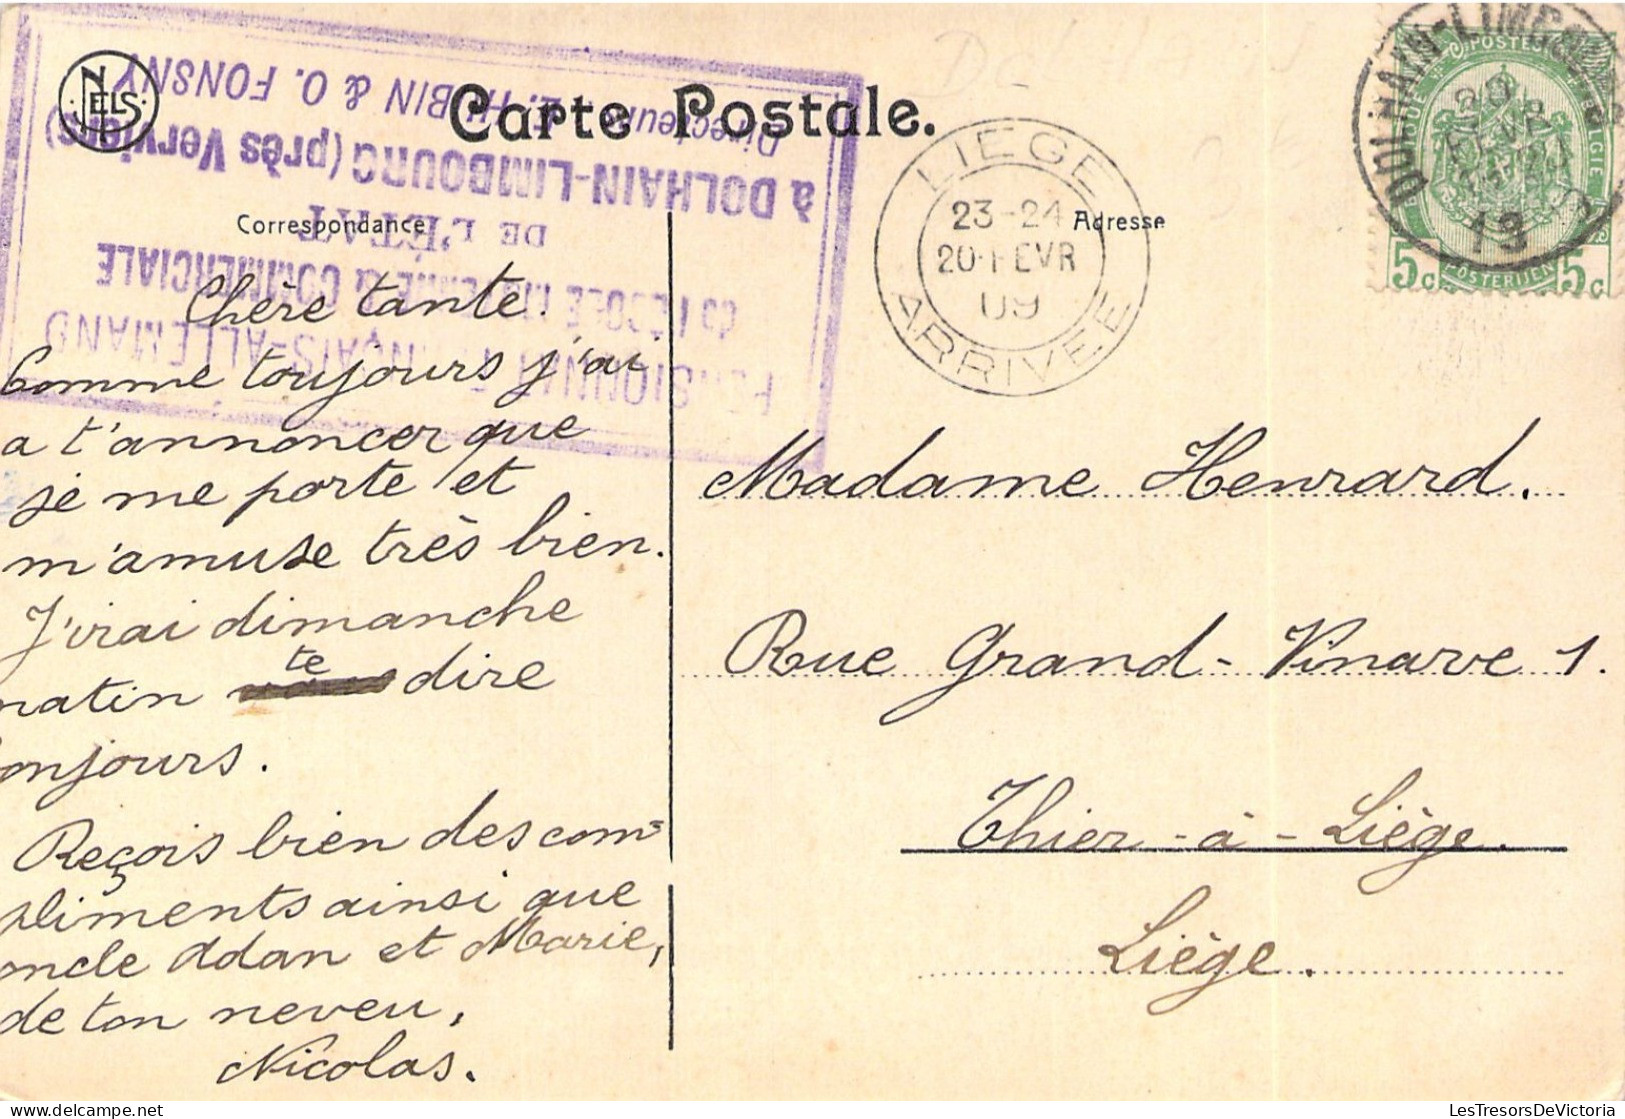 NELS
Carte Postale.
Correspondance
Adresse
PENSIONNAT FRANÇAIS-ALLEMAND
DE L'ÉTAT
à DOLHAIN-LIMBOURG (près Verviers)
Directeurs HUBIN & O. FONSNY
LIEGE
23-24
20 FEVR
09
ARRIVEE
DOLHAIN-LIMBOURG
20
FEVR
19
POSTES
POSTERIJEN
5c 5c
Chère tante.
Comme toujours j'ai
a t'annoncer que
je me porte et
m'amuse très bien.
J'irai dimanche
matin te dire
bonjours.
Reçois bien des com-
pliments ainsi que
oncle Adan et Marie,
de ton neveu,
Nicolas.
Madame Henrard.
Rue Grand-Vinave 1.
Thier-à-Liège.
Liège.
LesTresorsDeVictoria
delcampe.net